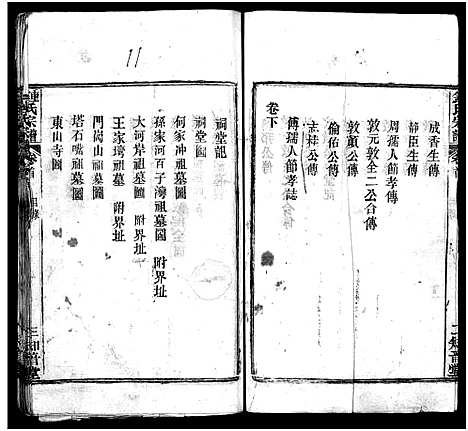 成香生傳
靜臣生傳
周孺人節孝傳
敦元敦全二公合傳
敦顛公傳
倫佑公傳
志桂公傳
傅孺人節孝誌
卷下
祠堂記
祠堂圖
何家冲祖墓圖
孫家河百子灣祖墓圖 附界址
大河岸祖墓圖 附界址
王家塆祖墓 附界址
門前山祖墓圖
塔石嘴祖墓圖
東山寺圖
鍾氏宗譜
卷首
目錄
三知書堂